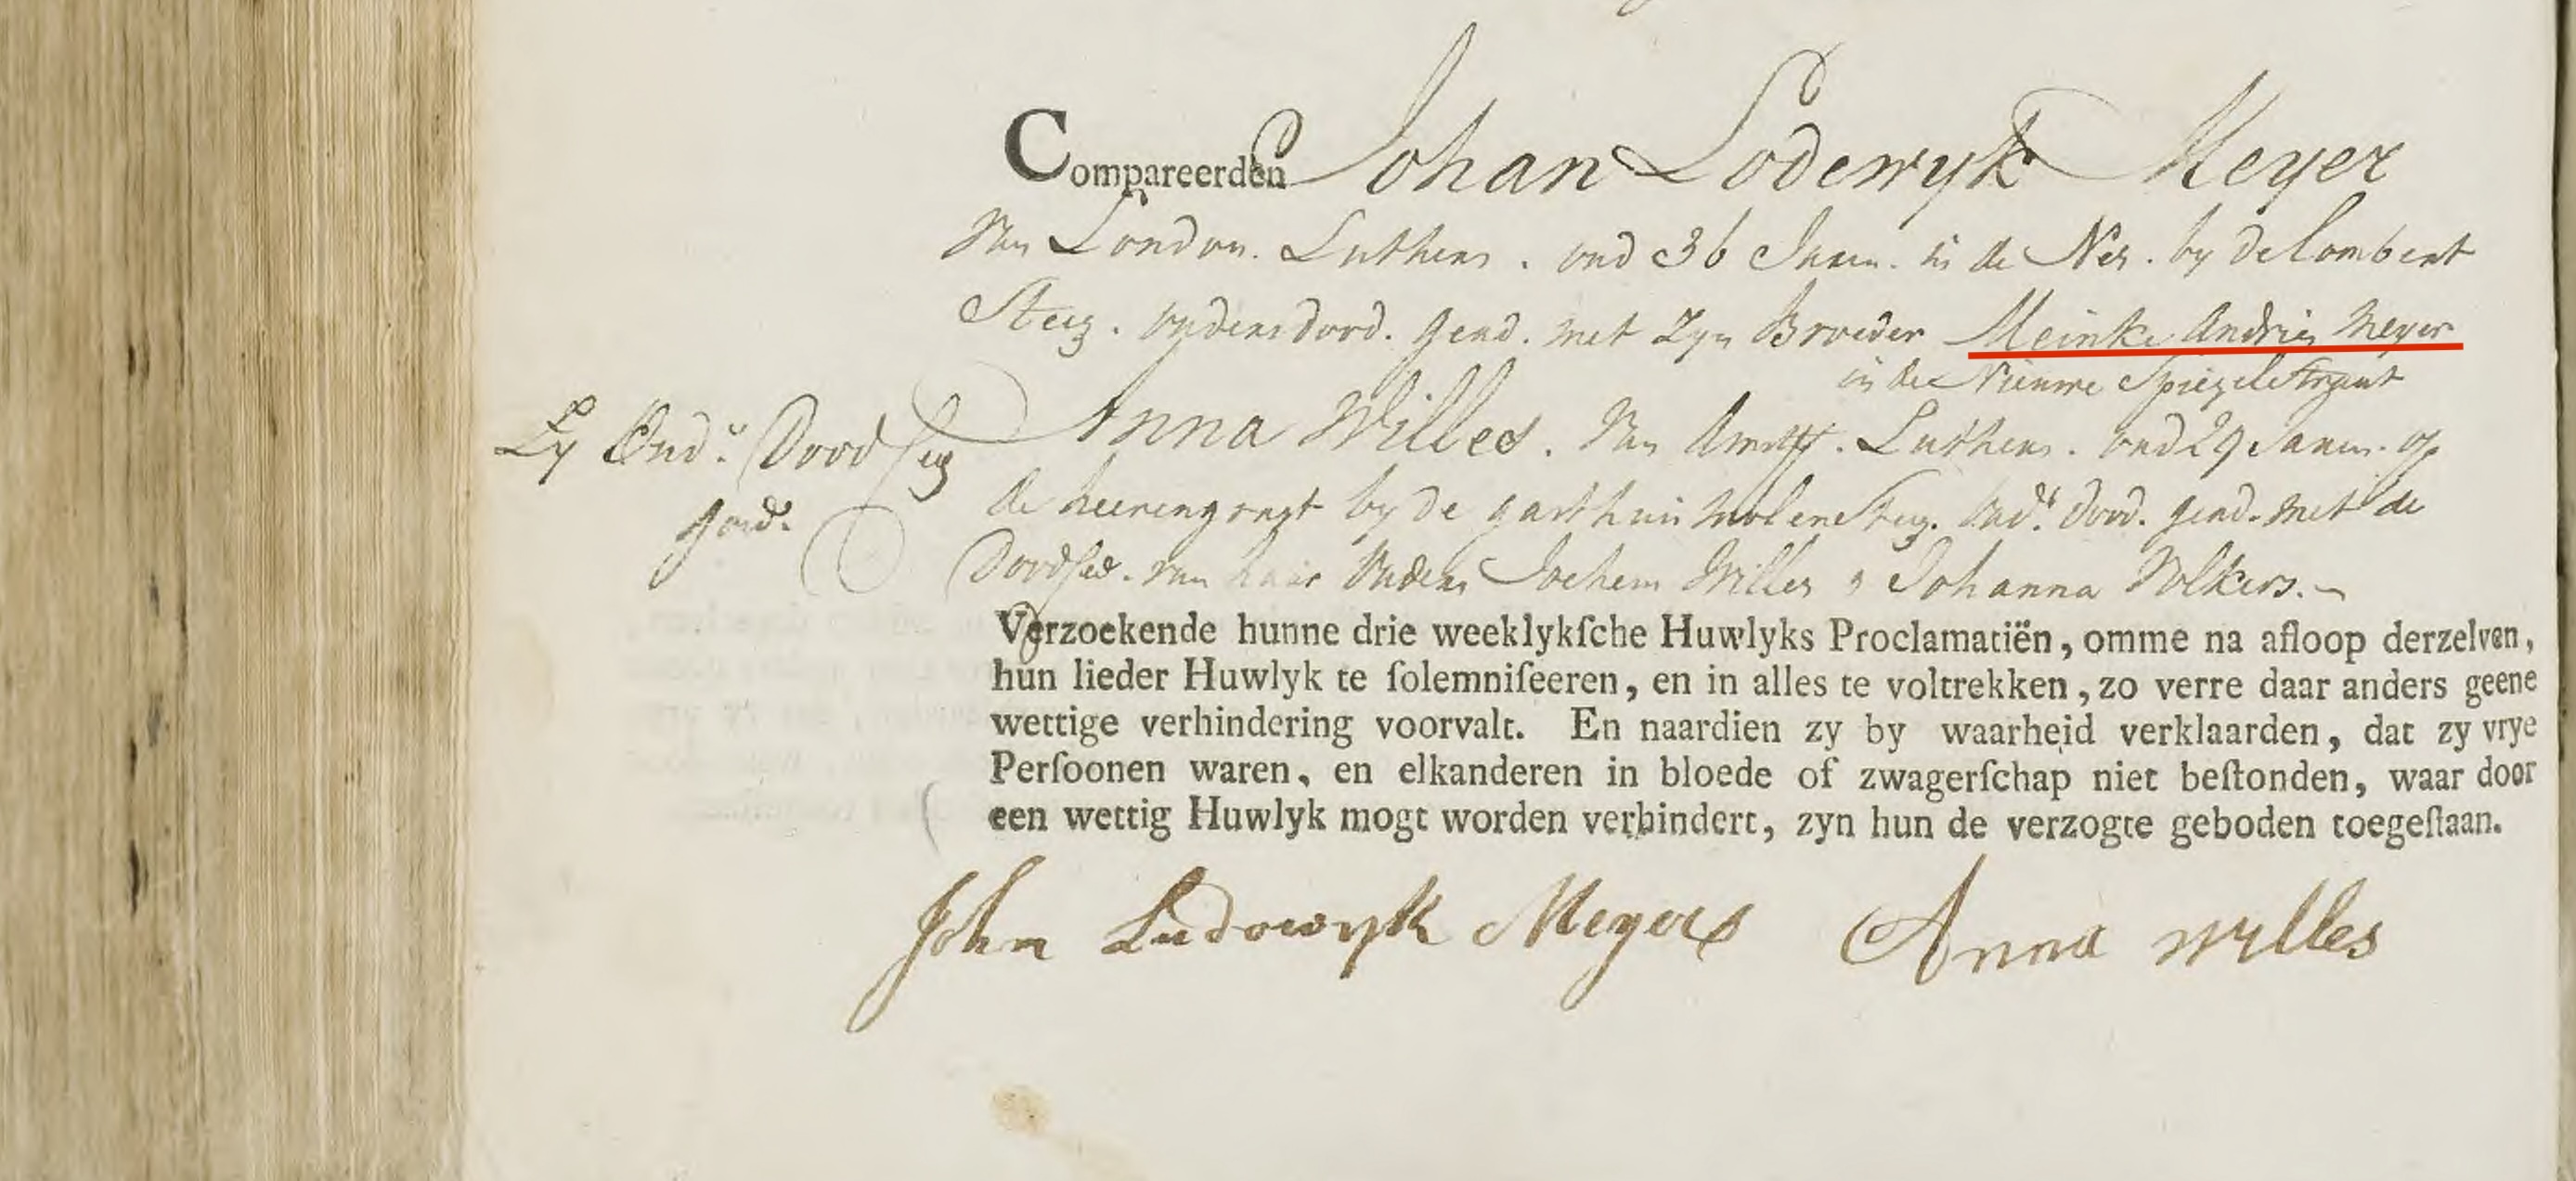 Compareerden Johan Lodewyk Meyer
Van London. Luthers. oud 36 Jaaren. in de Nes. by de Lombert
Steeg. ouders dood. gead. met Zyn Broeder Meinke Andries Meyer
in de Nieuwe Spiegelstraat
Anna Willes. Van Amst. Luthers. oud 29 Jaaren. op
de heerengragt by de gasthuis molensteeg. oud.s dood. gead. met de
Doodsed. van haar Ouders Jochem Willes & Johanna Volkers.
Verzoekende hunne drie weeklykſche Huwlyks Proclamatiën, omme na afloop derzelven,
hun lieder Huwlyk te ſolemniſeeren, en in alles te voltrekken, zo verre daar anders geene
wettige verhindering voorvalt. En naardien zy by waarheid verklaarden, dat zy vrye
Perſoonen waren, en elkanderen in bloede of zwagerſchap niet beſtonden, waar door
een wettig Huwlyk mogt worden verhindert, zyn hun de verzogte geboden toegeſtaan.
John Ludowyk Meyers Anna willes